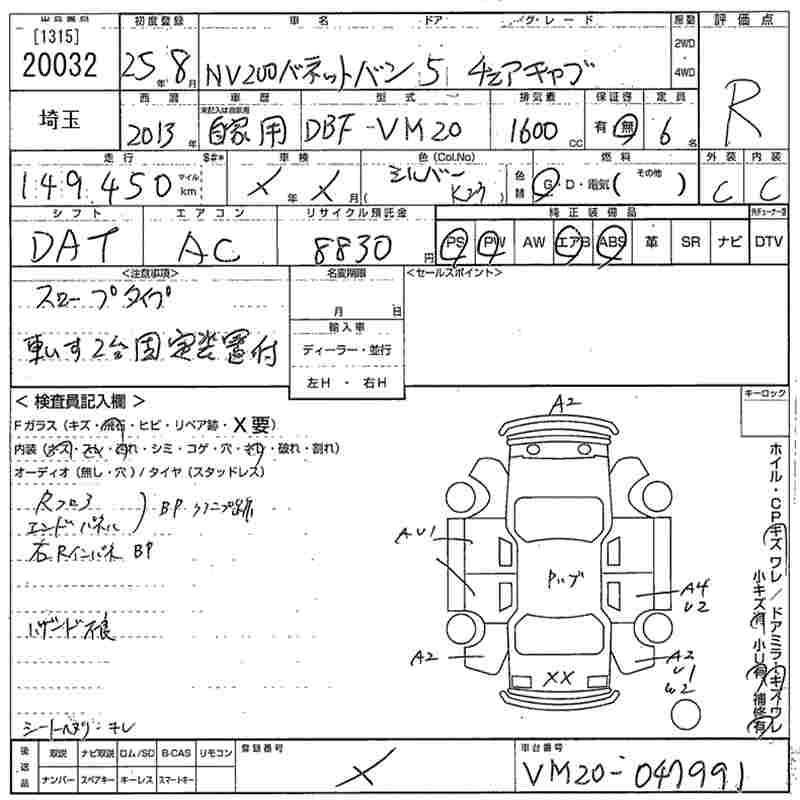 [1315]
20032
初度登録 車名 ドア グレード 評価点
25年 8月 NV200バネットバン 5 4エアキャブ 2WD 4WD R
埼玉
西暦 車歴 型式 排気量 保証書 定員
未記入は自家用
2013年 自家用 DBF-VM20 1600cc 有・無 6名
走行 車検 色(Col.No) 燃料 外装 内装
149,450 マイル km X年 X月 シルバー K23 ( ) 色替 G・D・電気( その他 ) C C
シフト エアコン リサイクル預託金 純正装備品
DAT AC 8830円 PS PW AW エアB ABS 革 SR ナビ DTV
<注意事項> 名変期限 <セールスポイント>
スロープタイプ
月 日
輸入車
車いす2台固定装置付 ディーラー・並行
左H・右H
<検査員記入欄> キーロック
Fガラス(キズ・飛石・ヒビ・リペア跡・X要)
内装(キズ・スレ・汚れ・シミ・コゲ・穴・キレ・破れ・割れ)
オーディオ(無し・穴)/タイヤ(スタッドレス)
Rフロア
エンドパネル
BP クランプ跡
右Rインパネ BP
ハザード不良
シートヘタリ・キレ
A2
AU1
A4
U2
A2
XX
A2
U1
U2
ホイル・CPキズワレ/ドアミラーキズワレ
小キズ有 小U有 補修有
後送品 取説 ナビ取説 ロム/SD B-CAS リモコン 登録番号 車台番号
ナンバー スペアキー キーレス スマートキー X VM20-047991